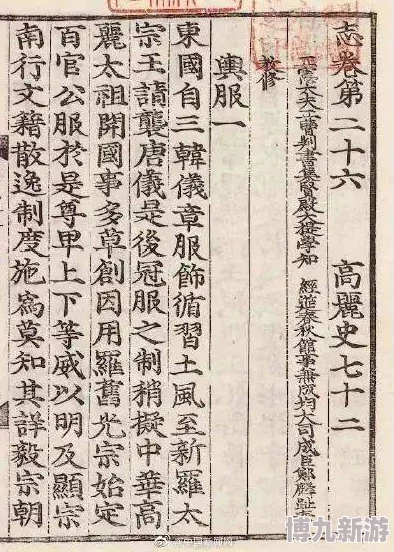 志卷第二十六 高麗史七十二
正憲大夫工曹判書集賢殿大提學知 經筵春秋館事兼成均大司成臣鄭麟趾奉
教修
輿服一
東國自三韓儀章服飾循習土風至新羅太
宗王請襲唐儀是後冠服之制稍擬中華高
麗太祖開國事多草創因用羅舊光宗始定
百官公服於是尊卑上下等威以明及顯宗
南行文籍散逸制度施爲莫知其詳毅宗朝
博九新游